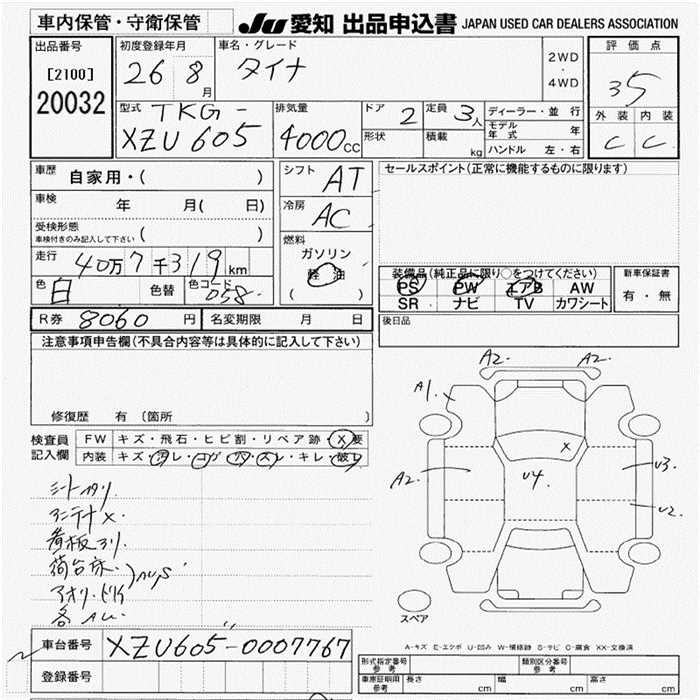 車内保管・守衛保管
JU 愛知 出品申込書 JAPAN USED CAR DEALERS ASSOCIATION
出品番号
[2100]
20032
初度登録年月
26 8月
車名・グレード
タイナ
2WD
・
4WD
評価点
35
外装 内装
C C
型式 TKG-
XZU605
排気量
4000cc
ドア 2
形状
定員 3人
積載 kg
ディーラー・並行
モデル年式 年
ハンドル 左・右
車歴
自家用・( )
車検 年 月( 日)
受検形態
車検付きのみ記入して下さい ( )
走行
40万7千319km
色 白 色替 色コード 058
シフト AT
冷房 AC
燃料
ガソリン
軽油
( )
セールスポイント(正常に機能するものに限ります)
装備品(純正品に限り○をつけてください)
PS PW エアB AW
SR ナビ TV カワシート
新車保証書
有・無
R券 8060 円 名変期限 月 日
後日品
注意事項申告欄(不具合内容等は具体的に記入して下さい)
修復歴 有 〔箇所 〕
検査員
記入欄
FW キズ・飛石・ヒビ割・リペア跡・X要
内装 キズ・汚レ・コゲ・穴・スレ・キレ・破レ
シートヘタリ.
アンテナ×.
看板アリ.
荷台床.
各AU.
A2. A2.
A1.
X
A2.
U4.
U3.
U2.
スペア
A-キズ E-エクボ U-凹み W-補修跡 S-サビ C-腐食 XX-交換済
車台番号 XZU605-0007767
登録番号
形式指定番号
参考
類別区分番号
参考
車庫証明用
参考
長さ cm 幅 cm 高さ cm